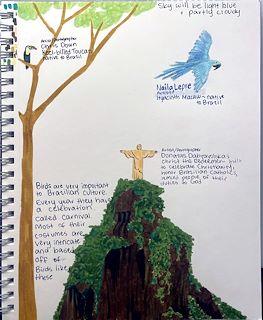 Sky will be light blue
+ partly cloudy
Artist/Photographer
Chris Down
Keel-billed Toucan
native to Brazil
Naila Lepre
Hyacinth Macaw - native
to Brazil
Artist/Photographer
Donatas Dabravolskas
Christ the Redeemer built
to celebrate Christianity,
honor Brazilian Catholics,
remind people of their
duties to God
Birds are very important
to Brazilian culture.
Every year they have
a celebration
called carnival.
Most of their
costumes are
very intricate
and based
off of
Birds like
these